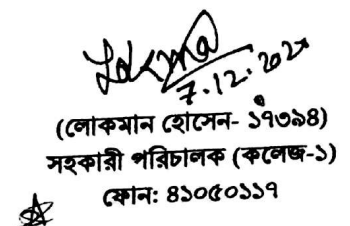 7.12.2021
(লোকমান হোসেন- ১৭৩৯৪)
সহকারী পরিচালক (কলেজ-১)
ফোন: ৪১০৫০১১৭